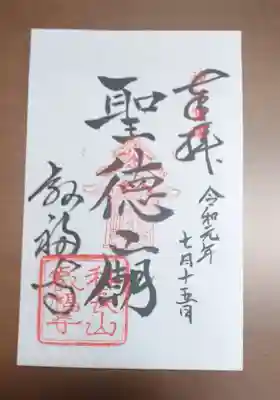 奉拝
令和元年
七月十五日
聖徳廟
叡福寺
長山
叡福寺